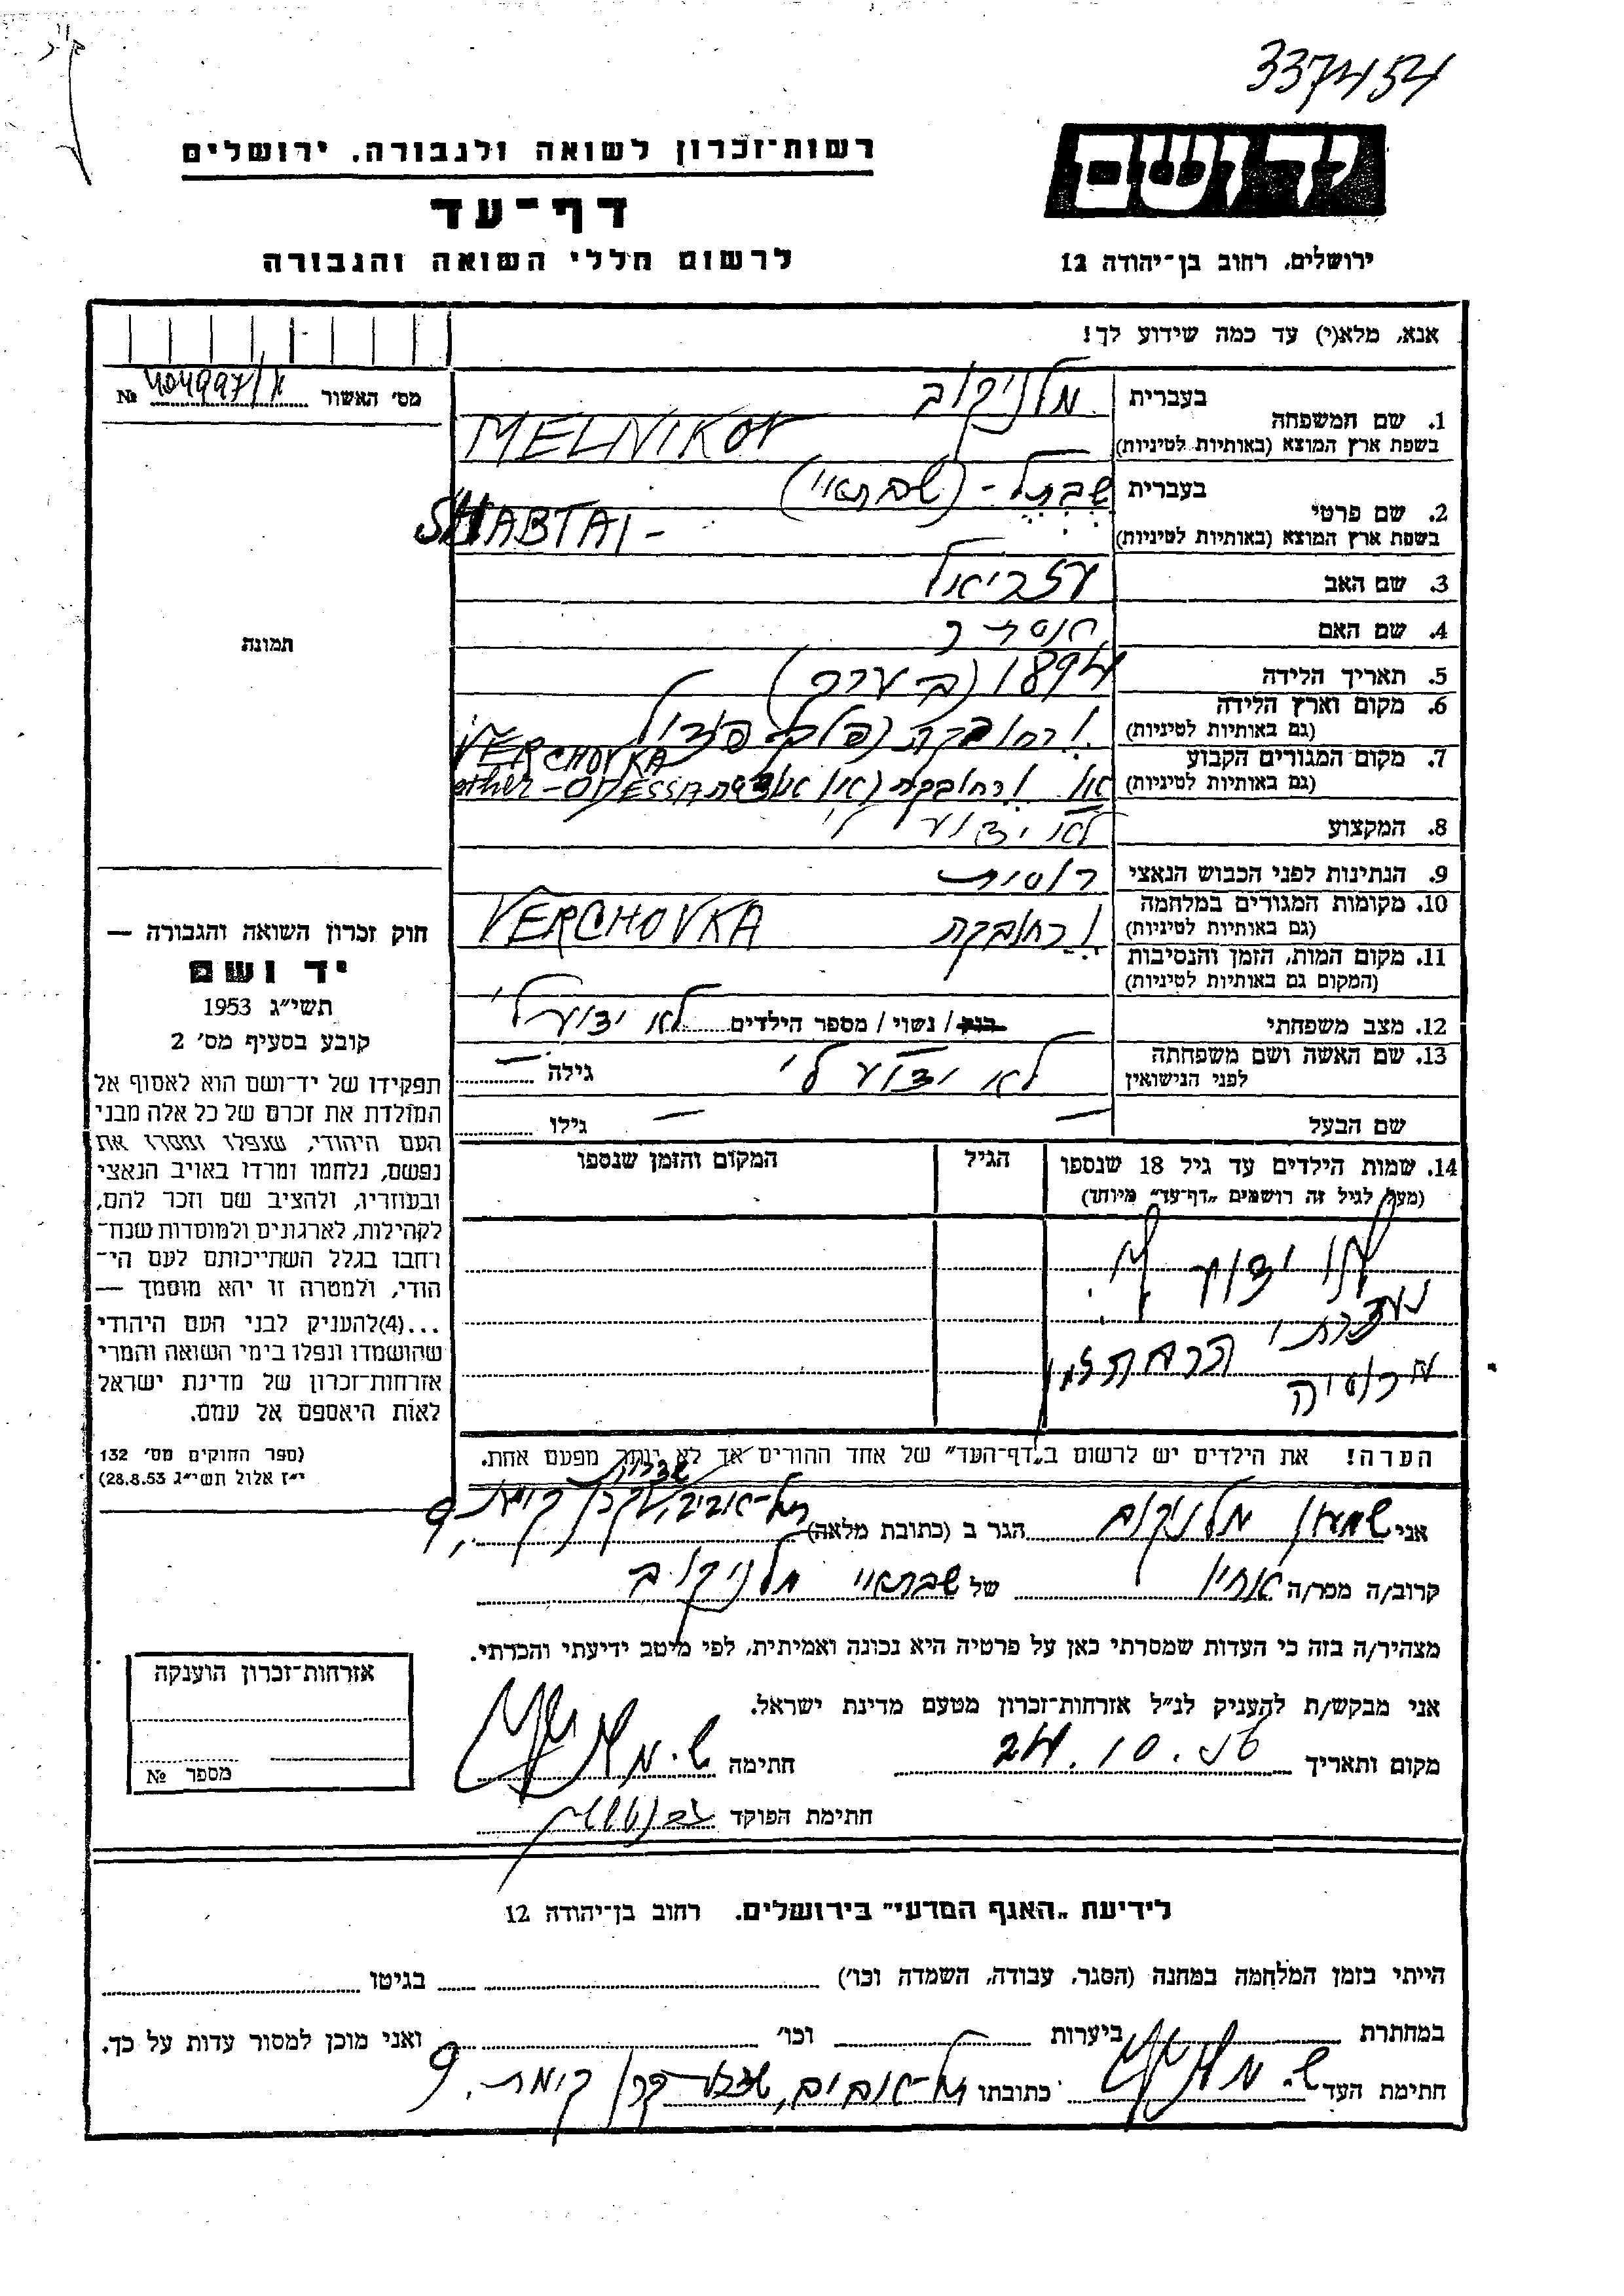 3374454
רשות־זכרון לשואה ולגבורה, ירושלים
יד ושם
דף־עד
לרשום חללי השואה והגבורה
ירושלים, רחוב בן־יהודה 12
אנא, מלא(י) עד כמה שידוע לך!
מס' האשור № 404997/א
1. שם המשפחה
בעברית מלניקוב
בשפת ארץ המוצא (באותיות לטיניות) MELNIKOV
2. שם פרטי
בעברית שבתל - (שבתאי)
בשפת ארץ המוצא (באותיות לטיניות) SHABTAI -
3. שם האב עזריאל
4. שם האם
5. תאריך הלידה 1894 (בערך)
6. מקום וארץ הלידה
(גם באותיות לטיניות) ורחובקה (פלך פודול
VERCHOVKA
7. מקום המגורים הקבוע
(גם באותיות לטיניות) או ורחובקה (או אודסה other - ODESSA
8. המקצוע לא ידוע לי
9. הנתינות לפני הכבוש הנאצי רוסית
10. מקומות המגורים במלחמה
(גם באותיות לטיניות) ורחובקה VERCHOVKA
11. מקום המות, הזמן והנסיבות
(המקום גם באותיות לטיניות)
12. מצב משפחתי רווק / נשוי / מספר הילדים לא ידוע לי
13. שם האשה ושם משפחתה
לפני הנישואין לא ידוע לי גילה —
שם הבעל — גילו
14. שמות הילדים עד גיל 18 שנספו
(מעל לגיל זה רושמים "דף־עד" מיוחד)
הגיל
המקום והזמן שנספו
לא ידוע לי
מרוסיה
הערה! את הילדים יש לרשום ב"דף־העד" של אחד ההורים אך לא יותר מפעם אחת.
תמונה
חוק זכרון השואה והגבורה —
יד ושם
תשי"ג 1953
קובע בסעיף מס' 2
תפקידו של יד־ושם הוא לאסוף אל
המולדת את זכרם של כל אלה מבני
העם היהודי, שנפלו ומסרו את
נפשם, נלחמו ומרדו באויב הנאצי
ובעוזריו, ולהציב שם וזכר להם,
לקהילות, לארגונים ולמוסדות שנח־
רבו בגלל השתייכותם לעם הי־
הודי, ולמטרה זו יהא מוסמך —
...(4)להעניק לבני העם היהודי
שהושמדו ונפלו בימי השואה והמרי
אזרחות־זכרון של מדינת ישראל
לאות היאספם אל עמם.
(ספר החוקים מס' 132
י"ז אלול תשי"ג 28.8.53)
אני שמעון מלניקוב הגר ב (כתובת מלאה) תל־אביב, שדרות קרן קימת, 9
קרוב/ה מכר/ה אחיו של שבתאי מלניקוב
מצהיר/ה בזה כי העדות שמסרתי כאן על פרטיה היא נכונה ואמיתית, לפי מיטב ידיעתי והכרתי.
אני מבקש/ת להעניק לנ"ל אזרחות־זכרון מטעם מדינת ישראל.
מקום ותאריך 24.10.56 חתימה
חתימת הפוקד
אזרחות־זכרון הוענקה
מספר №
לידיעת "האגף המדעי" בירושלים, רחוב בן־יהודה 12
הייתי בזמן המלחמה במחנה (הסגר, עבודה, השמדה וכו') בגיטו
במחתרת ביערות וכו' ואני מוכן למסור עדות על כך.
חתימת העד כתובתו תל־אביב, שד' קרן קימת, 9